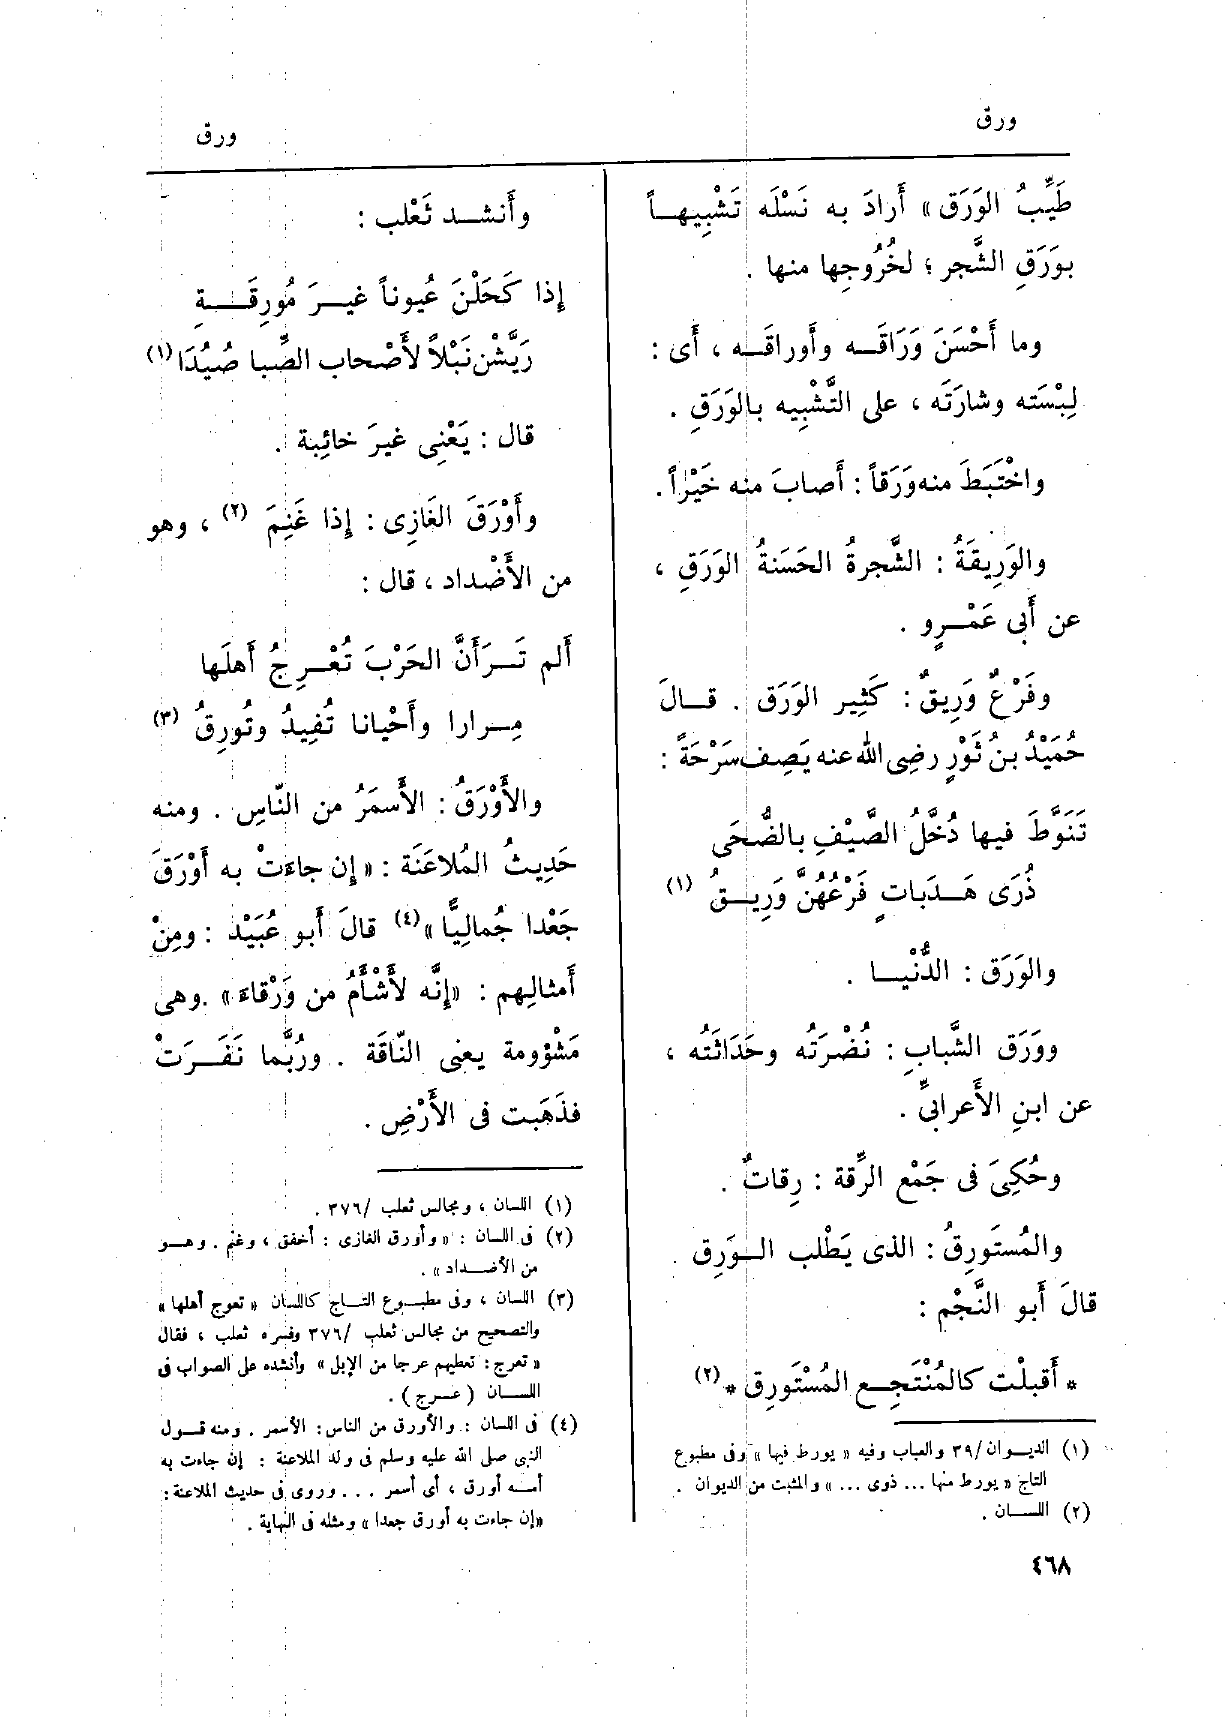 ورق
ورق
طَيِّبُ الوَرَق» أَرادَ به نَسْلَه تَشْبِيهاً
بوَرَقِ الشَّجر ؛ لخُرُوجِها منها .
وما أَحْسَنَ وَرَاقَه وأَوراقَه ، أَى :
لِبْسَته وشارَتَه ، على التَّشْبِيه بالوَرَقِ .
واخْتَبَطَ منه وَرَقاً : أَصابَ منه خَيْراً .
والوَرِيقَةُ : الشَّجرةُ الحَسَنةُ الوَرَقِ ،
عن أَبى عَمْرٍو .
وفَرْعٌ وَرِيقٌ : كَثِير الوَرَق . قالَ
حُمَيْدُ بنُ ثَوْرٍ رضِى الله عنه يَصِف سَرْحَةً :
تَنَوَّطَ فيها دُخَّلُ الصَّيْفِ بالضُّحَى
ذُرَى هَدَباتٍ فَرْعُهُنَّ وَرِيقُ (١)
والوَرَق : الدُّنْيا .
ووَرَق الشَّبابِ : نُضْرَتُه وحَدَاثَتُه ،
عن ابنِ الأَعرابىِّ .
وحُكِىَ فى جَمْع الرِّقة : رِقاتٌ .
والمُستَورِقُ : الذى يَطْلب الوَرِق .
قالَ أَبو النَّجْم :
* أَقبلْت كالمُنْتَجِع المُسْتَورِق * (٢)
(١) الديوان /٣٩ والعباب وفيه « يورط فيها » وفى مطبوع
التاج « يورط منها ... ذوى ... » والمثبت من الديوان .
(٢) اللسان .
٤٦٨
وأَنشد ثَعْلب :
إِذا كَحَلْنَ عُيوناً غيرَ مُورِقَةِ
رَيَّشْن نَبْلاً لأَصْحاب الصِّبا صُيُدَا (١)
قال : يَعْنِى غيرَ خائِبة .
وأَوْرَقَ الغَازِى : إِذا غَنِمَ (٢) ، وهو
من الأَضْداد ، قال :
أَلم تَرَ أَنَّ الحَرْبَ تُعْرِجُ أَهلَها
مِرارا وأَحْيانا تُفِيدُ وتُورِقُ (٣)
والأَوْرَقُ : الأَسمَرُ من النّاسِ . ومنه
حَدِيثُ المُلاعَنَة : «إِن جاءَتْ به أَوْرَقَ
جَعْدا جُمالِيًّا» (٤) قالَ أَبو عُبَيْد : ومِنْ
أَمثالِهم : «إِنَّه لأَشْأَمُ من وَرْقاءَ» . وهى
مَشْؤومة يعنى النّاقَة . ورُبَّما نَفَرَتْ
فذَهَبت فى الأَرْضِ .
(١) اللسان ، ومجالس ثعلب /٣٧٦ .
(٢) فى اللسان : «وأورق الغازى : أخفق ، وغنم . وهو
من الأضداد » .
(٣) اللسان ، وفى مطبوع التاج كاللسان « تعوج أهلها »
والتصحيح من مجالس ثعلب /٣٧٦ وفسره ثعلب ، فقال
« تعرج : تعطيهم عرجا من الإبل » وأنشده على الصواب فى
اللسان ( عرج ) .
(٤) فى اللسان : والأورق من الناس : الأسمر . ومنه قول
النبى صلى الله عليه وسلم فى ولد الملاعنة : إن جاءت به
أمه أورق ، أى أسمر ... وروى فى حديث الملاعنة :
«إن جاءت به أورق جعدا » ومثله فى النهاية .